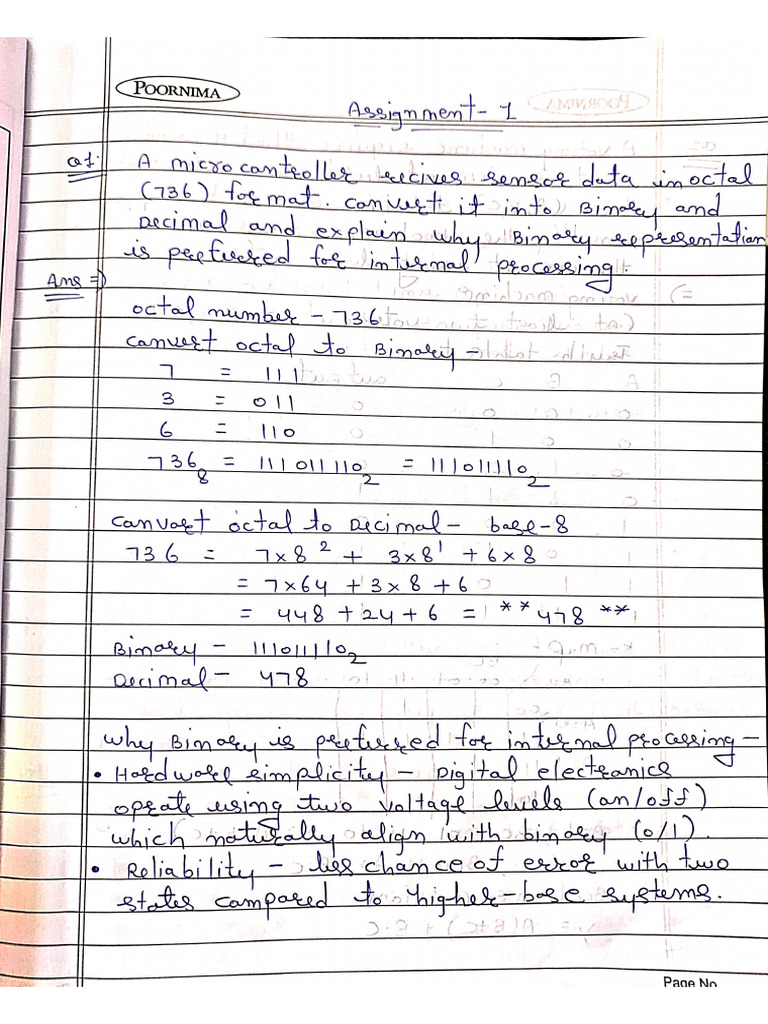 POORNIMA
Assignment - 1
Q1. A microcantroller recives sensor data in octal
(736) format. canvert it into Binary and
Decimal and explain why Binary representation
is prefurred for internal processing.
Ans =>
octal number - 736
canvert octal to Binary -
7 = 111
3 = 011
6 = 110
736₈ = 111011110₂ = 111011110₂
canvart octal to Decimal - base-8
736 = 7×8² + 3×8¹ + 6×8
= 7×64 + 3×8 + 6
= 448 + 24 + 6 = **478**
Binary - 111011110₂
Decimal - 478
why Binary is prefurred for internal processing -
• Hardware simplicity - Digital electranics
oprate using two voltage levels (an/off)
which naturally align with binary (0/1).
• Reliability - less chance of error with two
states campared to higher-base systems.
Page No